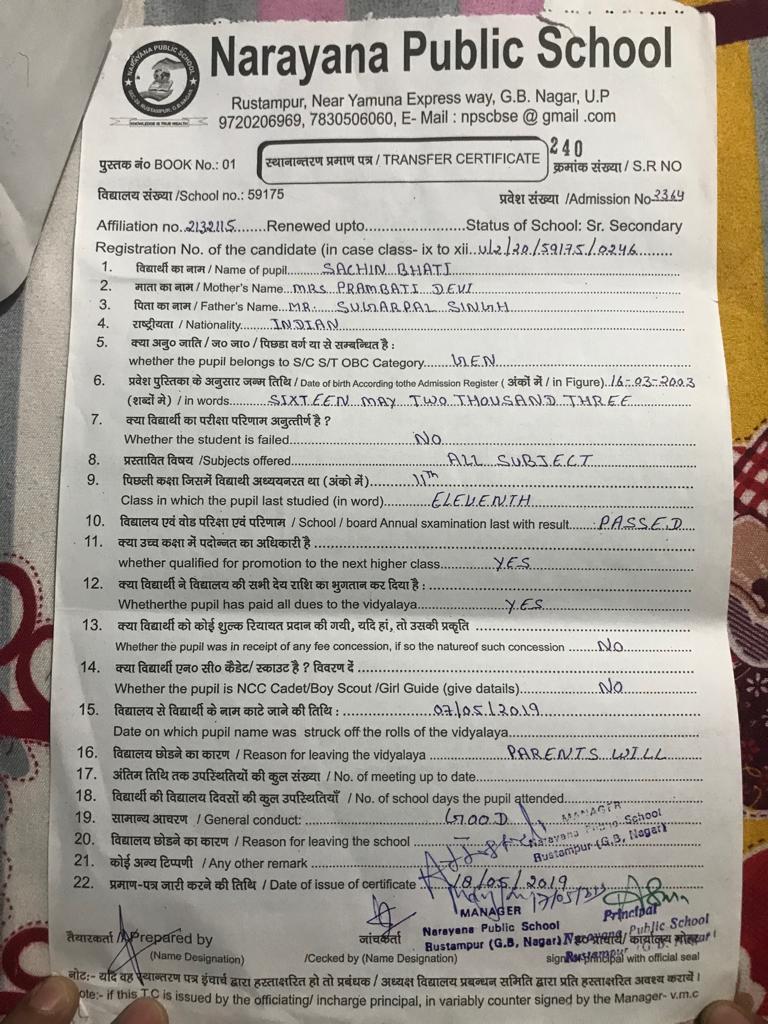 NARAYANA PUBLIC SCHOOL
KNOWLEDGE IS TRUE WEALTH
Narayana Public School
Rustampur, Near Yamuna Express way, G.B. Nagar, U.P
9720206969, 7830506060, E- Mail : npscbse @ gmail .com
पुस्तक नं० BOOK No.: 01 स्थानान्तरण प्रमाण पत्र / TRANSFER CERTIFICATE 240 क्रमांक संख्या / S.R NO
विद्यालय संख्या /School no.: 59175 प्रवेश संख्या /Admission No 2364
Affiliation no. 2132115 Renewed upto Status of School: Sr. Secondary
Registration No. of the candidate (in case class- ix to xii.. U/2/20/59175/0246
1. विद्यार्थी का नाम / Name of pupil SACHIN BHATI
2. माता का नाम / Mother's Name MRS PRAMBATI DEVI
3. पिता का नाम / Father's Name MR. SUGARPAL SINGH
4. राष्ट्रीयता / Nationality INDIAN
5. क्या अनु० जाति / ज० जा० / पिछडा वर्ग या से सम्बन्धित है :
whether the pupil belongs to S/C S/T OBC Category GEN
6. प्रवेश पुस्तिका के अनुसार जन्म तिथि / Date of birth According tothe Admission Register ( अंकों में / in Figure) 16-03-2003
(शब्दों मे) / in words SIXTEEN MAY TWO THOUSAND THREE
7. क्या विद्यार्थी का परीक्षा परिणाम अनुत्तीर्ण है ?
Whether the student is failed NO
8. प्रस्तावित विषय /Subjects offered ALL SUBJECT
9. पिछली कक्षा जिसमें विद्यार्थी अध्ययनरत था (अंको में) 11th
Class in which the pupil last studied (in word) ELEVENTH
10. विद्यालय एवं वोड परिक्षा एवं परिणाम / School / board Annual sxamination last with result PASSED
11. क्या उच्च कक्षा में पदोन्नत का अधिकारी है
whether qualified for promotion to the next higher class YES
12. क्या विद्यार्थी ने विद्यालय की सभी देय राशि का भुगतान कर दिया है :
Whetherthe pupil has paid all dues to the vidyalaya YES
13. क्या विद्यार्थी को कोई शुल्क रियायत प्रदान की गयी, यदि हां, तो उसकी प्रकृति
Whether the pupil was in receipt of any fee concession, if so the natureof such concession NO
14. क्या विद्यार्थी एन० सी० कैडेट/ स्काउट है ? विवरण दें
Whether the pupil is NCC Cadet/Boy Scout /Girl Guide (give datails) NO
15. विद्यालय से विद्यार्थी के नाम काटे जाने की तिथि : 07/05/2019
Date on which pupil name was struck off the rolls of the vidyalaya
16. विद्यालय छोडने का कारण / Reason for leaving the vidyalaya PARENTS WILL
17. अंतिम तिथि तक उपस्थितियों की कुल संख्या / No. of meeting up to date
18. विद्यार्थी की विद्यालय दिवसों की कुल उपस्थितियाँ / No. of school days the pupil attended
19. सामान्य आचरण / General conduct: GOOD
MANAGER
Narayana Public School
Rustampur (G.B, Nagar)
20. विद्यालय छोडने का कारण / Reason for leaving the school
21. कोई अन्य टिप्पणी / Any other remark
22. प्रमाण-पत्र जारी करने की तिथि / Date of issue of certificate 18/05/2019
MANAGER
Narayana Public School
Rustampur (G.B, Nagar)
Principal
Narayana Public School
तैयारकर्ता / Prepared by
(Name Designation)
जांचकर्ता
/Cecked by (Name Designation)
sign principal with official seal
नोट:- यदि वह स्थान्तरण पत्र इंचार्ज द्वारा हस्ताक्षरित हो तो प्रबंधक / अध्यक्ष विद्यालय प्रबन्धन समिति द्वारा प्रति हस्ताक्षरित अवश्य करायें ।
ote:- if this T.C is issued by the officiating/ incharge principal, in variably counter signed by the Manager- v.m.c